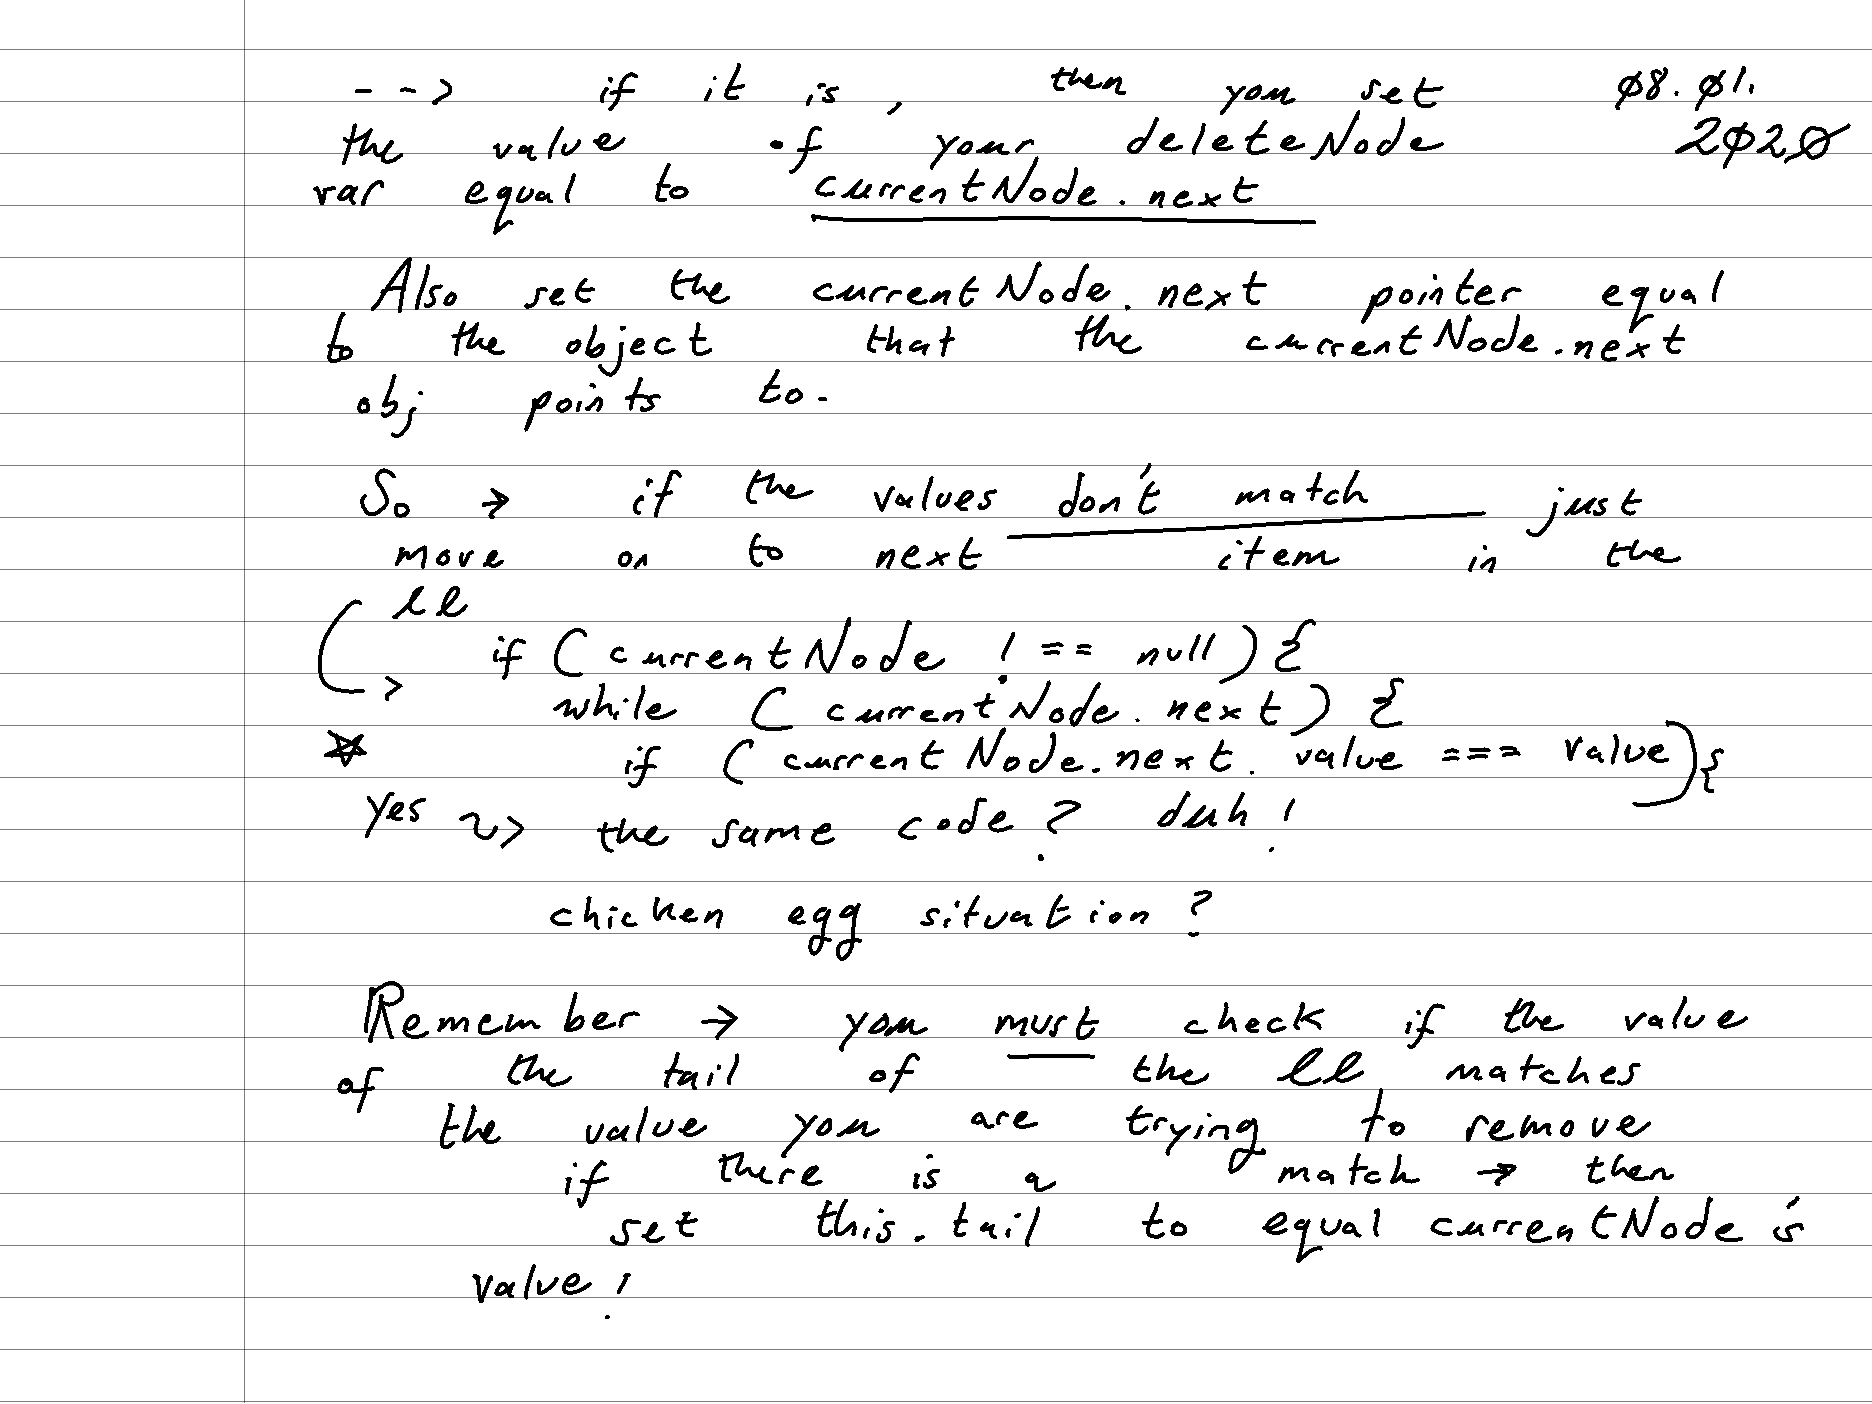 --> if it is, then you set 08.01.
the value of your deleteNode 2020
var equal to currentNode.next
Also set the currentNode.next pointer equal
to the object that the currentNode.next
obj points to.
So → if the values don't match just
move on to next item in the
ll
if (currentNode !== null) {
while (currentNode.next) {
if (currentNode.next.value === value) {
yes ~> the same code? duh!
chicken egg situation?
Remember → you must check if the value
of the tail of the ll matches
the value you are trying to remove
if there is a match → then
set this.tail to equal currentNode's
value!